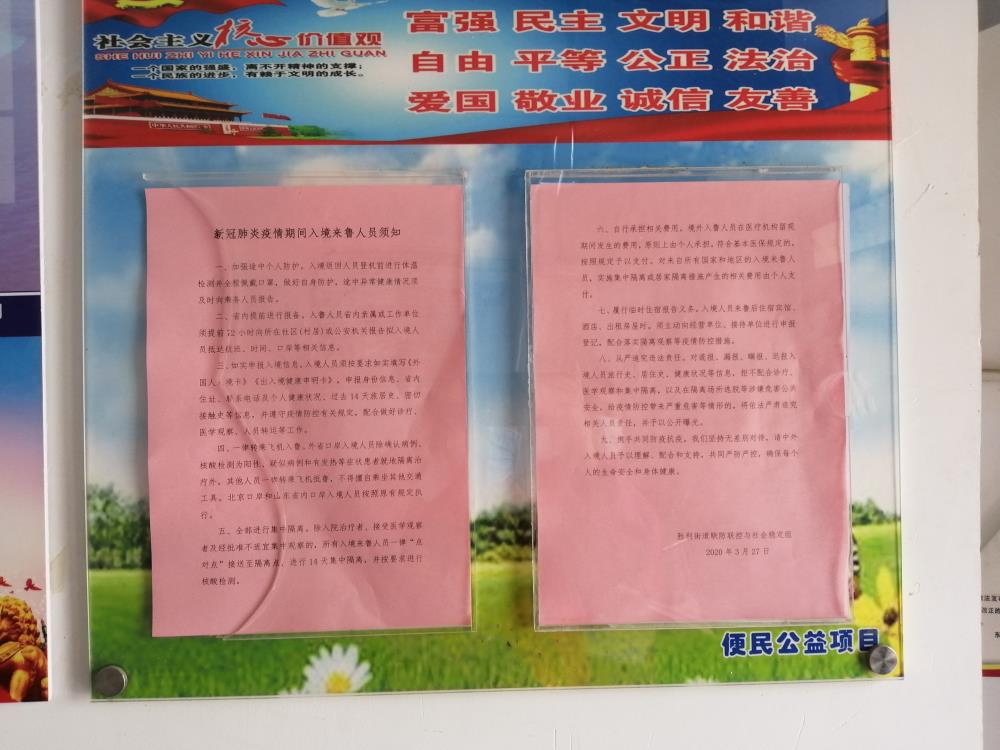 社会主义核心价值观
SHE HUI ZHU YI HE XIN JIA ZHI GUAN
一个国家的强盛，离不开精神的支撑；
一个民族的进步，有赖于文明的成长。
富强 民主 文明 和谐
自由 平等 公正 法治
爱国 敬业 诚信 友善
新冠肺炎疫情期间入境来鲁人员须知
一、加强途中个人防护。入境返回人员登机前进行体温
检测并全程佩戴口罩，做好自身防护。途中异常健康情况须
及时向乘务人员报告。
二、省内提前进行报备。入鲁人员省内亲属或工作单位
须提前72小时向所在社区(村居)或公安机关报告拟入境人
员抵达航班、时间、口岸等相关信息。
三、如实申报入境信息。入境人员须按要求如实填写《外
国人 境卡》《出入境健康申明卡》，申报身份信息、省内
住址、联系电话及个人健康状况、过去14天旅居史、密切
接触史等信息，并遵守疫情防控有关规定，配合做好诊疗、
医学观察、人员转运等工作。
四、一律转乘飞机入鲁。外省口岸入境人员除确认病例、
核酸检测为阳性、疑似病例和有发热等症状患者就地隔离治
疗外，其他人员一律转乘飞机抵鲁，不得擅自乘坐其他交通
工具。北京口岸和山东省内口岸入境人员按照原有规定执
行。
五、全部进行集中隔离。除入院治疗者、接受医学观察
者及经批准不适宜集中观察的，所有入境来鲁人员一律“点
对点”接送至隔离点、进行14天集中隔离，并按要求进行
核酸检测。
六、自行承担相关费用。境外入鲁人员在医疗机构留观
期间发生的费用，原则上由个人承担。符合基本医保规定的，
按照规定予以支付。对来自所有国家和地区的入境来鲁人
员，实施集中隔离或居家隔离措施产生的相关费用由个人支
付。
七、履行临时住宿报告义务。入境人员来鲁后住宿宾馆、
酒店、出租房屋时，须主动向经营单位、接待单位进行申报
登记，配合落实隔离观察等疫情防控措施。
八、从严追究违法责任。对谎报、漏报、瞒报、迟报入
境人员旅行史、居住史、健康状况等信息，拒不配合诊疗、
医学观察和集中隔离，以及在隔离场所逃脱等涉嫌危害公共
安全，给疫情防控带来严重危害等情形的，将依法严肃追究
相关人员责任，并予以公开曝光。
九、携手共同防疫抗疫。我们坚持无差别对待，请中外
入境人员予以理解、配合和支持，共同严防严控，确保每个
人的生命安全和身体健康。
胜利街道联防联控与社会稳定组
2020年3月27日
便民公益项目